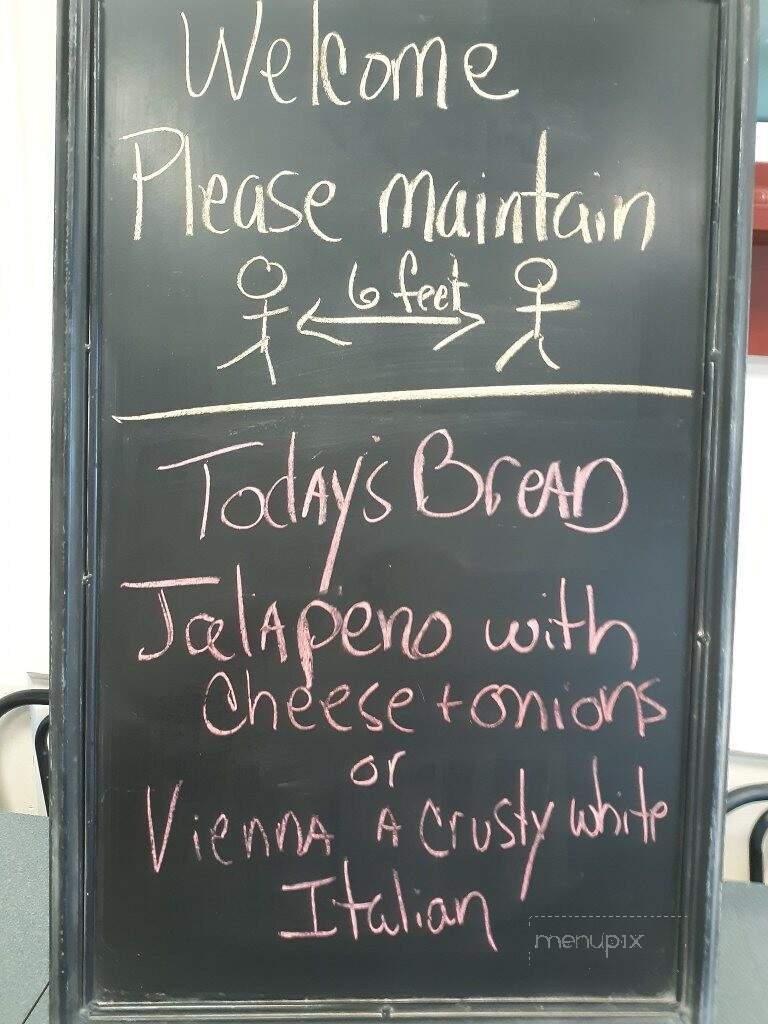 Welcome
Please maintain
6 feet
Today's Bread
Jalapeno with
cheese + onions
or
Vienna A Crusty white
Italian
menupix